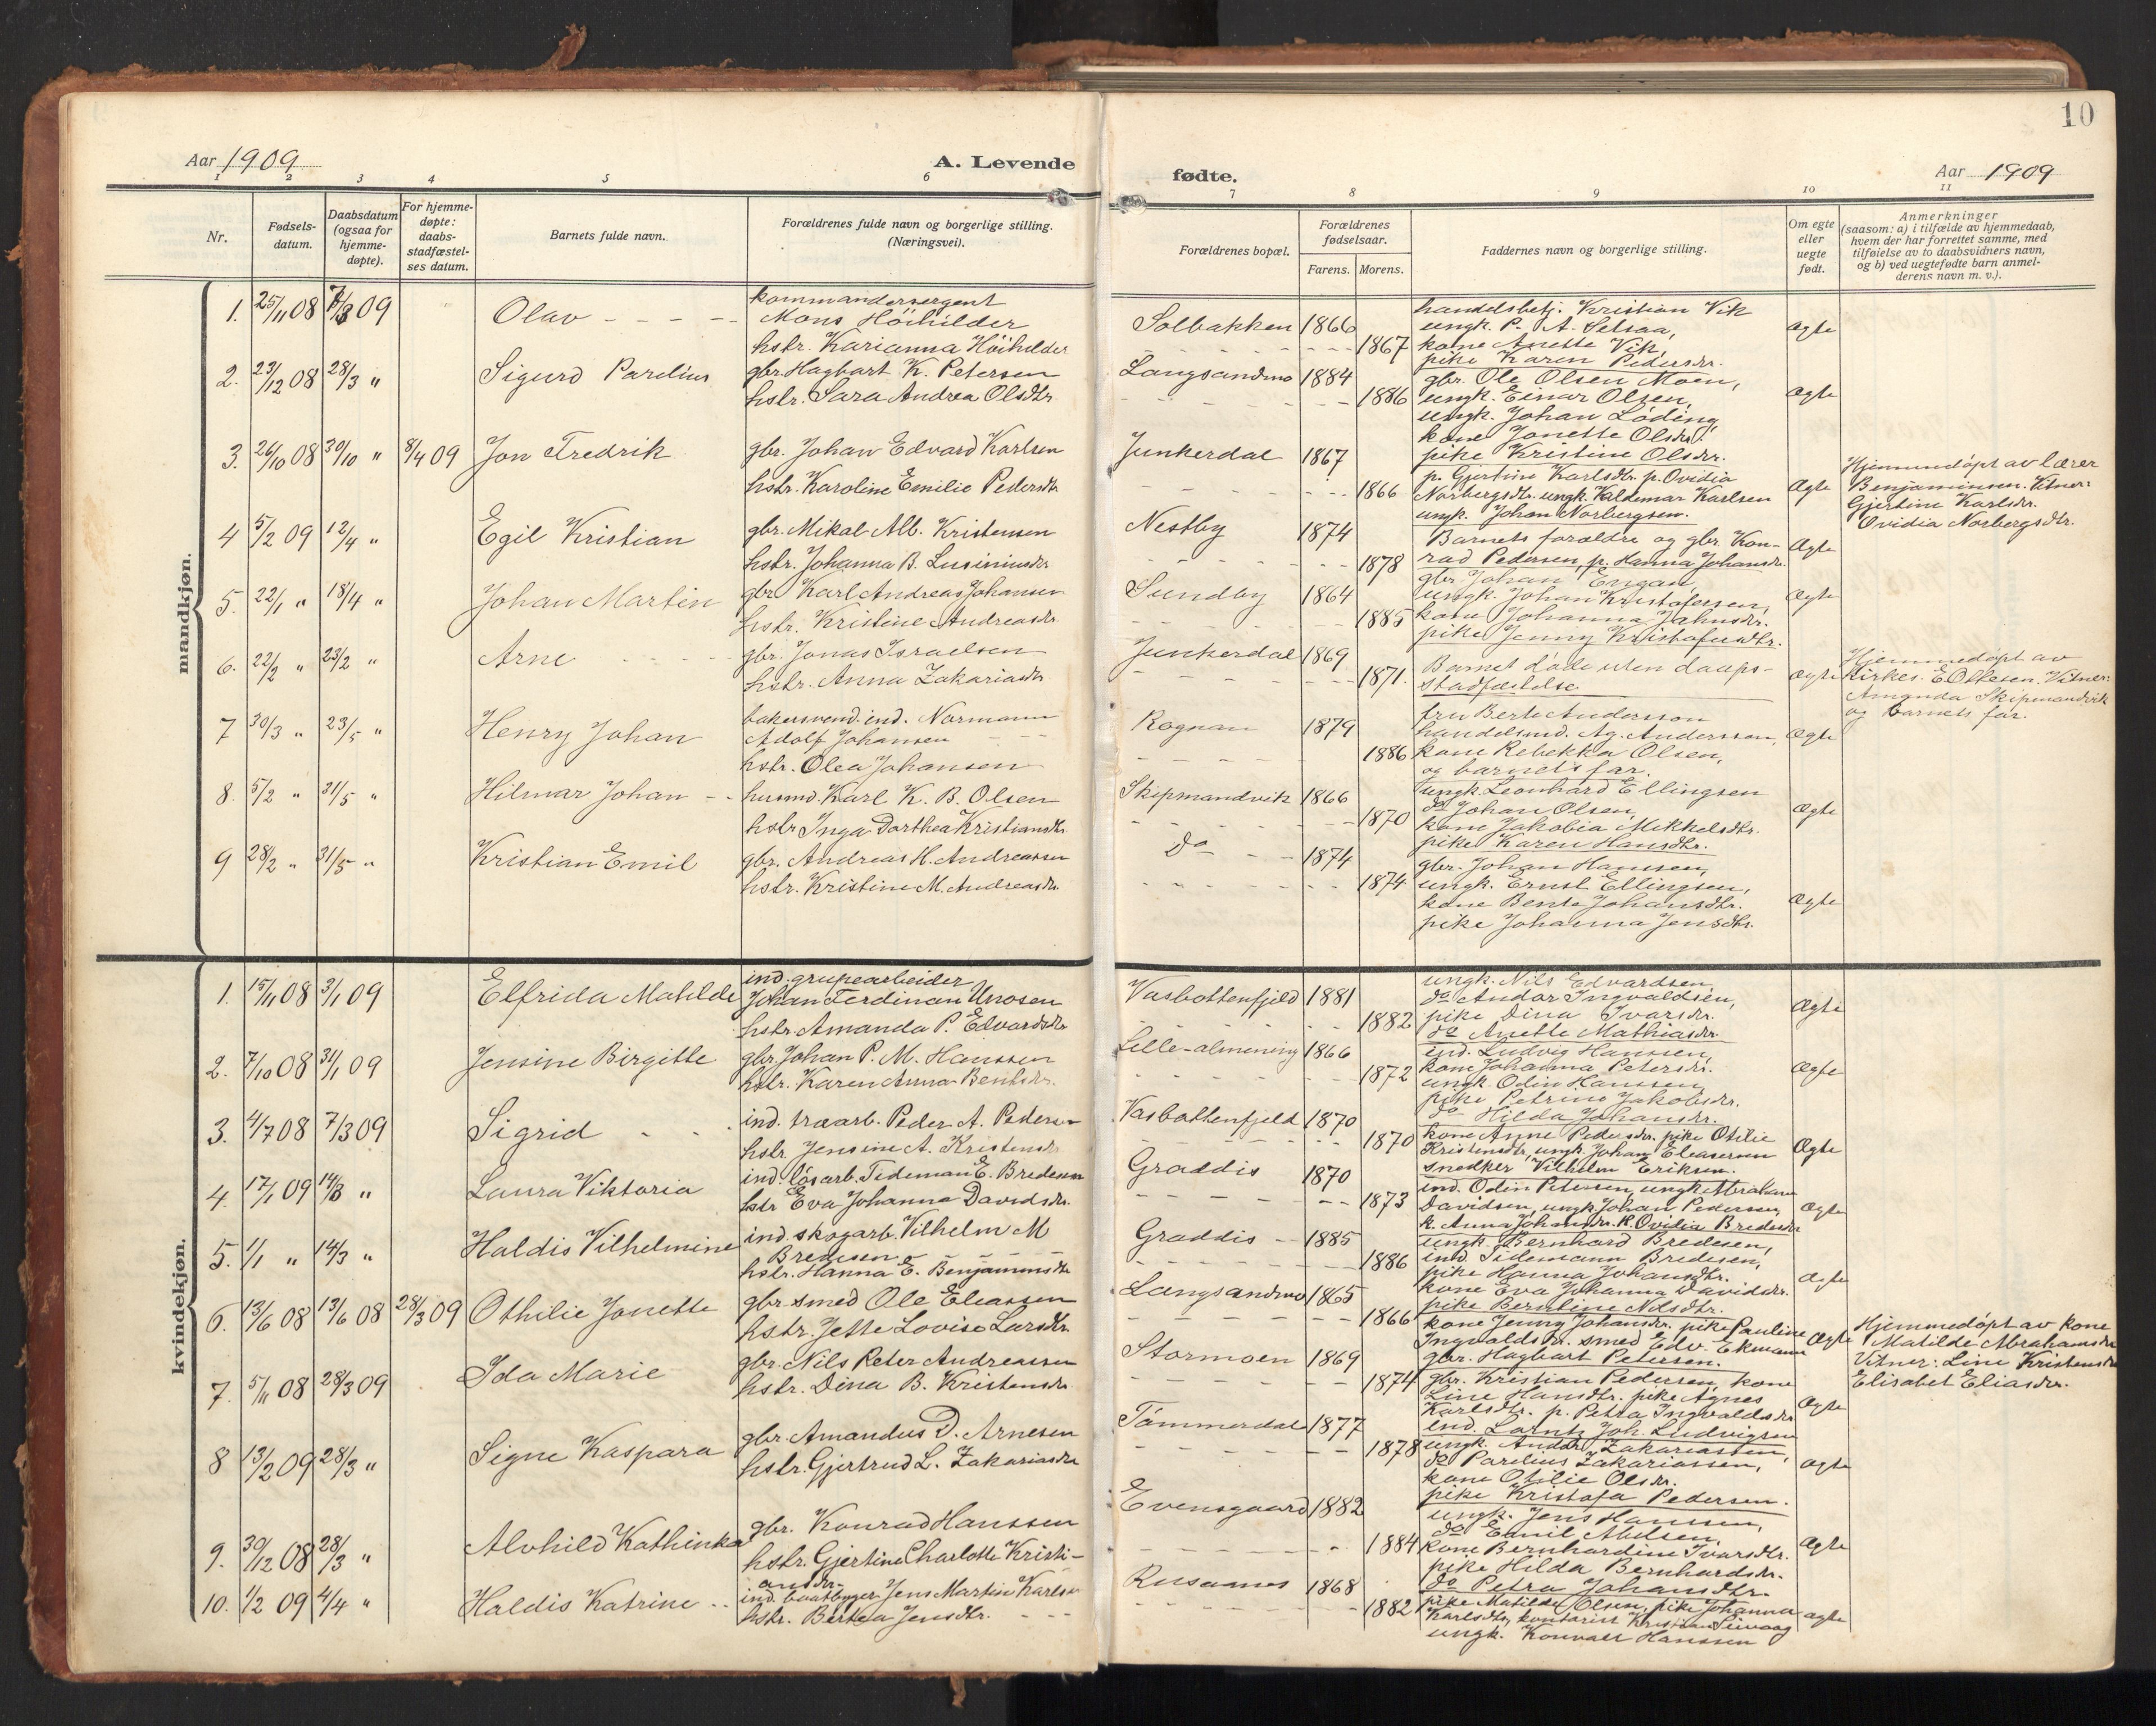 10
Aar 1909
A. Levende
fødte.
Aar 1909
1 2 3 4 5 6 7 8 9 10 11
Nr.
Fødsels-
datum.
Daabsdatum
(ogsaa for
hjemme-
døpte).
For hjemme-
døpte:
daabs-
stadfæstel-
ses datum.
Barnets fulde navn.
Forældrenes fulde navn og borgerlige stilling.
(Næringsvei).
Forældrenes bopæl.
Forældrenes
fødselsaar.
Farens. Morens.
Faddernes navn og borgerlige stilling.
Om egte
eller
uegte
født.
Anmerkninger
(saasom: a) i tilfælde av hjemmedaab,
hvem der har forrettet samme, med
tilføielse av to daabsvidners navn,
og b) ved uegtefødte barn anmel-
derens navn m. v.).
mandkjøn.
1. 25/11 08 7/3 09 Olav
kommandersergent
Mons Höihilder
hstr. Karianna Höihilder
Solbakken 1866
1867
handelsbetj. Kristian Vik
ungk. P. A. Selsaa,
kone Anette Vik,
pike Karen Pedersdr.
ægte
2. 23/12 08 28/3 " Sigurd Parelius
gbr. Hagbart K. Petersen
hstr. Sara Andrea Olsdtr
Langsandmo 1884
1886
gbr. Ole Olsen Moen,
ungk. Einar Olsen,
ungk. Johan Löding,
kone Jonette Olsdr.
pike Kristine Olsdr.
Ægte
3. 26/10 08 30/10 " 8/4 09 Jon Fredrik
gbr. Johan Edvard Karlsen
hstr. Karoline Emilie Pedersdtr
Junkerdal 1867
1866
p. Gjertine Karlsdtr. p. Ovidia
Norbergsdtr. ungk. Valdemar Karlsen
ungk. Johan Norbergsen.
Ægte
Hjemmedöpt av lærer
Benjaminsen. Vitner:
Gjertine Karlsdr.
Ovidia Norbergsdtr.
4 5/2 09 12/4 " Egil Kristian
gbr. Mikal Alb. Kristensen
hstr. Johanna B.
Nestby 1874
1878
Barnets forældre og gbr. Kon-
rad Pedersen, p. Hanna Johansdr.
Ægte
5. 22/1 " 18/4 " Johan Martin
gbr. Karl Andreas Johansen
hstr. Kristine Andreasdr.
Sundby 1864
1885
gbr Johan Engan,
ungk. Johan Kristofersen,
kone Johanna Jahnsdr.
pike Jenny Kristofersdtr.
Ægte
6. 22/2 " 23/2 " Arne
gbr. Jonas Israelsen
hstr. Anna Zakariasdr.
Junkerdal 1869
1871.
Barnet döde uten daaps-
stadfæstelse
Ægte
Hjemmedöpt av
Kirkes. E. Olsen. Vitner:
Amanda Skipmandvik
og barnets far.
7 30/3 " 23/5 " Henry Johan
bakersvend. ind. Normann
Adolf Johansen
hstr. Olea Johansen
Rognan 1879
1886
fru Berte Andersson
handelsmd. Ag. Andersson,
kone Rebekka Olsen,
og barnets far.
Ægte
8. 5/2 " 31/5 " Hilmar Johan
husmd. Karl K. B. Olsen
hstr Inga Dorthea Kristiansdtr
Skipmandvik 1866
1870
ungk. Leonhard Ellingsen
do Johan Olsen,
kone Jakobia Mikkelsdtr.
pike Karen Hansdtr.
Ægte
9 28/2 " 31/5 " Kristian Emil
gbr. Andreas H. Andreassen
hstr. Kristine M. Andreasdr.
Do 1874
1874
gbr. Johan Hansen,
ungk. Ernst Ellingsen,
kone Bente Johansdtr.
pike Johanna Jensdtr.
Ægte
kvindekjøn.
1. 15/11 08 3/1 09 Elfrida Matilde
ind. grupearbeider
Johan Ferdinan Unosen
hstr. Amanda P. Edvardsdr
Vasbottenfjeld 1881
1882
ungk. Nils Edvardsen,
do Andor Ingvaldsen,
pike Dina Ivarsdr.
do Anette Mathiasdr.
Ægte
2. 7/10 08 31/1 09 Jensine Birgitte
gbr Johan P. M. Hanssen
hstr. Karen Anna Bentsdr.
Lille-almening 1866
1872
ind. Ludvig Hanssen,
kone Johanna Petersdr.
ungk. Odin Hanssen,
pike Petrine Jakobsdr.
do Hilda Johansdr.
Ægte
3. 4/7 08 7/3 09 Sigrid
ind. træarb. Peder A. Pedersen
hstr. Jensine A. Kristensdr
Vasbottenfjeld 1870
1870
kone Anne Pedersdr. pike Otilie
Kristensdtr, ungk. Johan Eleasersen
snedker Vilhelm Eriksen.
Ægte
4. 17/1 09 14/3 " Laura Viktoria
ind. lösarb. Tideman E. Bredesen
hstr Eva Johanna Davidsdr.
Graddis 1870
1873
ind. Odin Petersen, ungk Abraham
Davidsen, ungk. Johan Pedersen,
k. Anna Johansdr. k. Ovidia Bredesdr
Ægte
5. 1/1 " 14/3 " Haldis Vilhelmine
ind. skogarb. Vilhelm M
Bredesen
hstr. Hanna E. Benjaminsdtr
Graddis 1885
1886
ungk. Bernhard Bredesen,
ind. Tidemann Bredesen,
pike Hanna Johansdtr.
kone Eva Johanna Davidsdr.
pike Berntine Nilsdtr.
Ægte
6. 13/6 08 13/6 08 28/3 09 Othilie Jonette
gbr. smed Ole Eleassen
hstr. Jette Lovise Larsdtr.
Langsandmo 1865
1866
kone Jenny Johansdr. pike Pauline
Ingvaldsdr. smed Edv. Ekmann
gbr. Hagbart Petersen.
Ægte
Hjemmedöpt av kone
Matilde Abrahamsdr
Vitner: Line Kristensdr
Elisabet Eliasdr.
7. 5/11 08 28/3 09 Ida Marie
gbr. Nils Peter Andreassen
hstr. Dina B. Kristensdr.
Stormoen 1869
1874
gbr. Kristian Pedersen, kone
Line Hansdtr. pike Agnes
Karlsdtr. p. Petra Ingvaldsdr
Ægte
8 13/2 09 28/3 " Signe Kaspara
gbr. Amandus D. Arnesen
hstr. Gjertrud L. Zakariasdr
Tömmerdal 1877
1878
ind. Lornts Joh. Ludvigsen
ungk. Andor Zakariassen,
do Parelius Zakariassen,
kone Otilie Olsdr.
pike Kristofa Pedersen.
ægte
9. 30/12 08 28/3 " Alvhild Kathinka
gbr. Konrad Hanssen
hstr. Gjertine Charlotte Kristi-
ansdr.
Evensgaard 1882
1884
ungk. Jens Hanssen,
do Emil Abelsen,
kone Bernhardine Ivarsdtr.
pike Hilda Bernhardsdr.
do Petra Johansdtr.
Ægte
10. 1/2 09 4/4 " Haldis Katrine
ind. baatbyger Jens Martin Karlsen
hstr. Bertea Jensdtr.
Rusaanes 1868
1882
pike Matilde Olsen, pike Johanna
Karlsdtr, kontorist Kristian
ungk. Konvald Hanssen
ægte